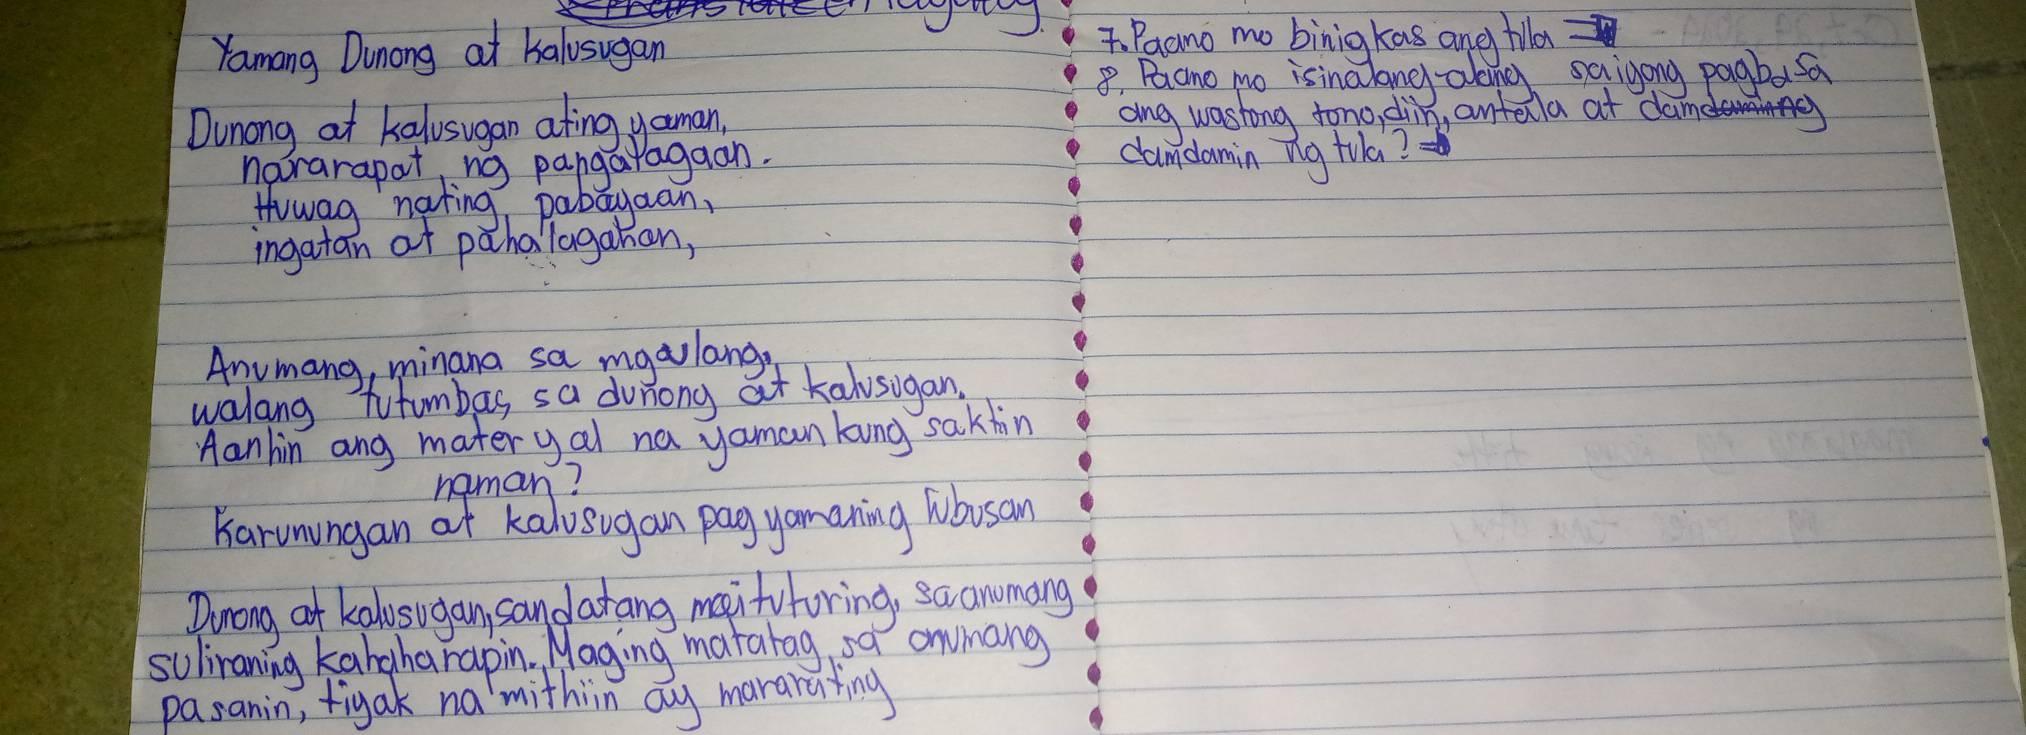 Yamang Dunong at kalusugan
Dunong at kalusugan ating yaman,
nararapat, ng pangalagaan.
Huwag nating pabayaan,
ingatan at pahalagahan,
Anumang, minana sa mga lang,
walang tutumbas sa dunong at kalusugan.
Aanhin ang materyal na yaman kung saktin
naman?
Karunungan at kalusugan pagyamaning lubusan
Dunong at kalusugan, sandatang maituturing, sa anumang
suliraning kahaharapin. Maging matatag sa anumang
pasanin, tiyak na mithiin ay mararating
7. Paano mo binigkas ang tila
8. Paano mo isinalang-alang sa iyong pagbasa
ang wastong tono, diin, antala at damdaming
damdamin ng tula?